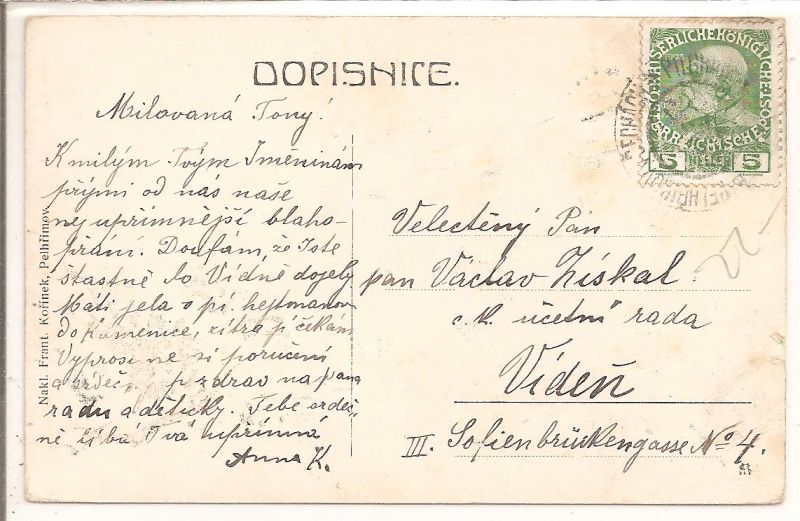 DOPISNICE.
Milovaná Tony!
K milým Tvým Jmeninám
přijmi od nás naše
nejupřímnější blaho-
přání. Doufám, že jste
šťastně do Vídně dojely
Máti jela s pí. hejtmanovou
do Kamenice, zítra ji čekám
Vyprosuje si poručení
a srdeč. pozdrav na pana
radu a dětičky. Tebe srdeč-
ně líbá Tvá upřímná
Anna K.
Velectěný Pán
pan Václav Získal
c. k. účetní rada
Vídeň
III. Sofienbrückengasse No 4.
Nakl. Frant. Kořínek, Pelhřimov.
KAISERLICHE KÖNIGLICHE ÖSTERREICHISCHE POST
5 HELLER 5